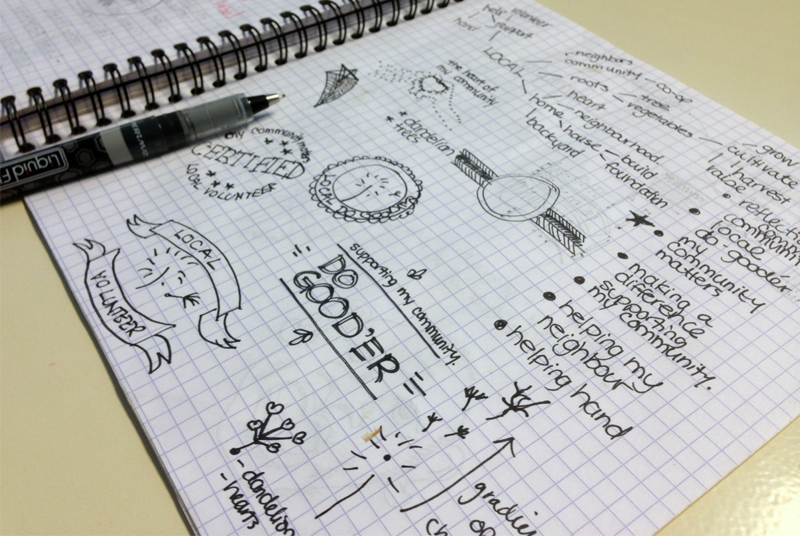 volunteer
help
support
LOCAL
neighbors
community - co-op
roots - tree
heart
vegetables
home - neighbourhood
house - build
backyard
foundation
grow
cultivate
harvest
the heart of
my community
* dandelion
* trees
my community matters
CERTIFIED
LOCAL VOLUNTEER
LOCAL
Liquid
LOCAL
VOLUNTEER
= DO
GOOD'ER =
supporting my community.
community
locale
do-gooder
• my
community
matters
• making a
difference
• supporting
my community.
• helping my
neighbour
• helping hand
- dandelion
- hearts